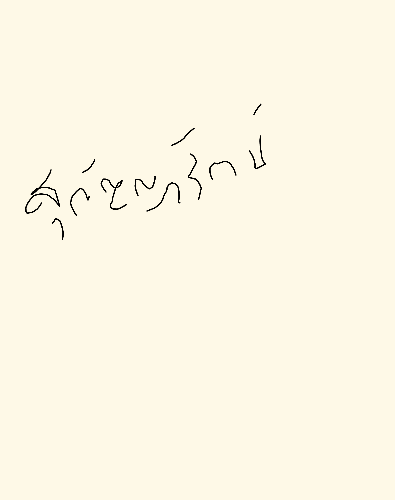 สุกัญญารักษ์